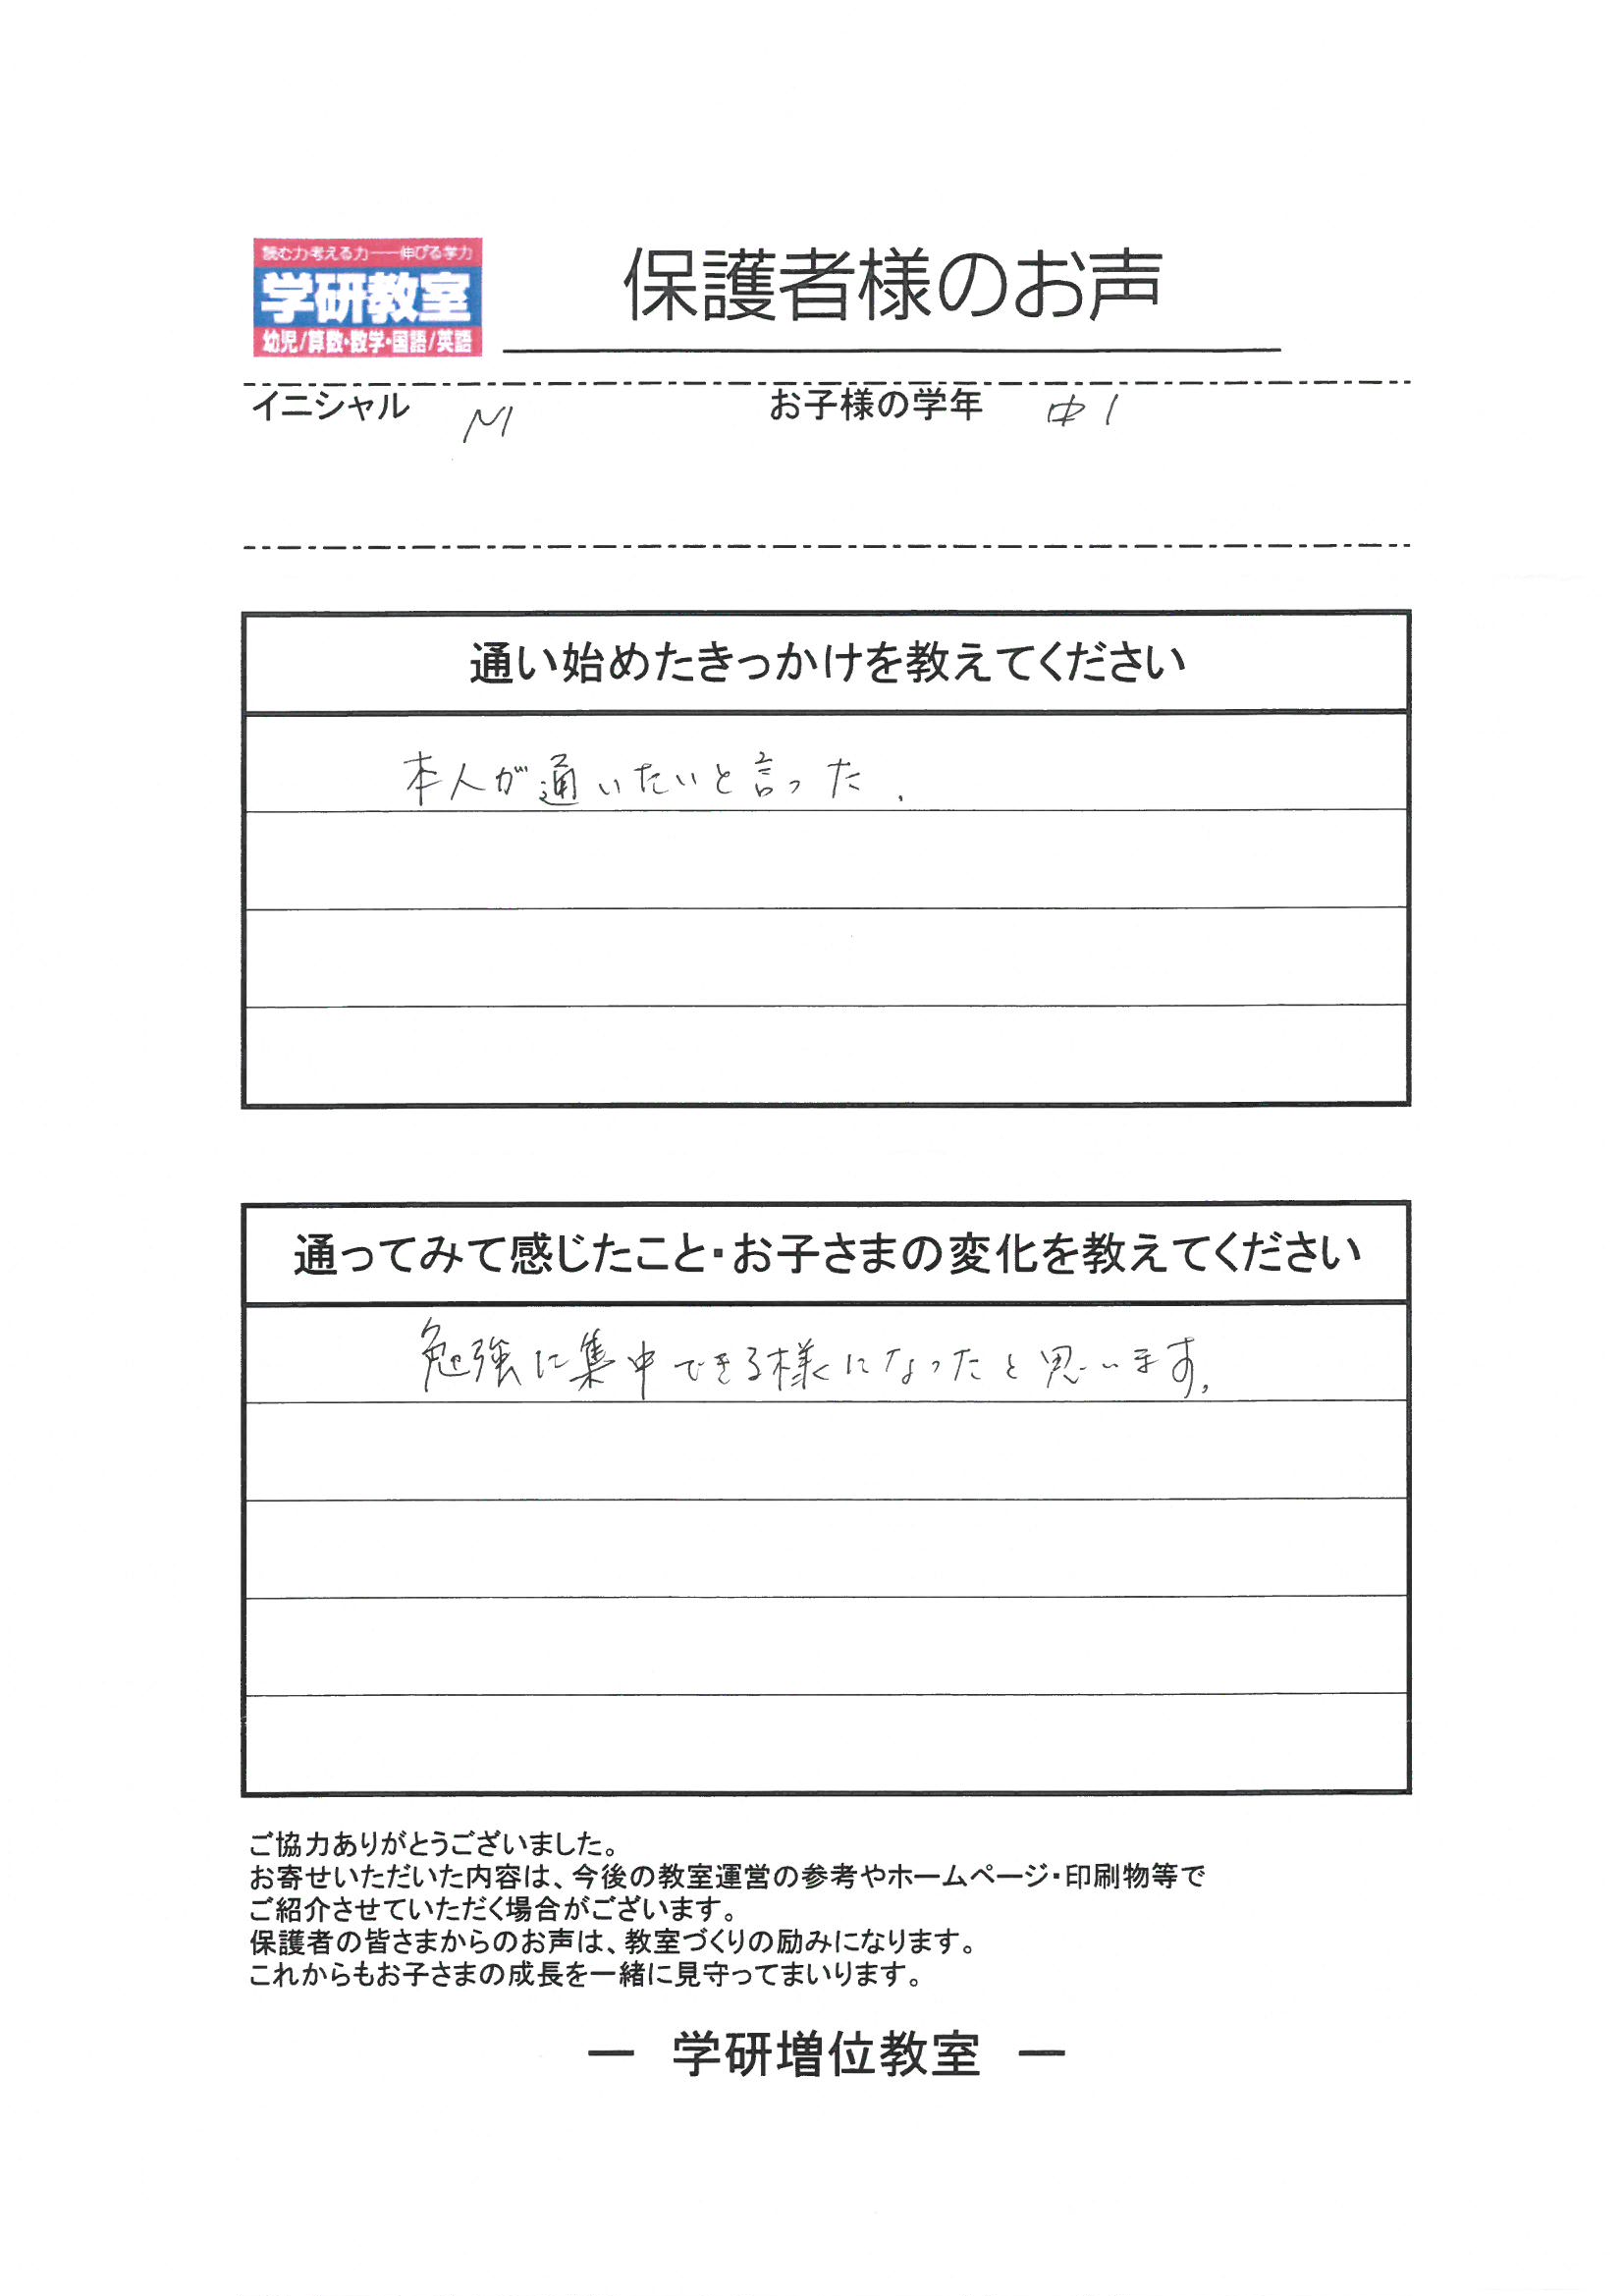 読む力考える力──伸びる学力
学研教室
幼児/算数・数学・国語/英語
保護者様のお声
イニシャル M お子様の学年 中1
通い始めたきっかけを教えてください
本人が通いたいと言った.
通ってみて感じたこと・お子さまの変化を教えてください
勉強に集中できる様になったと思います.
ご協力ありがとうございました。
お寄せいただいた内容は、今後の教室運営の参考やホームページ・印刷物等で
ご紹介させていただく場合がございます。
保護者の皆さまからのお声は、教室づくりの励みになります。
これからもお子さまの成長を一緒に見守ってまいります。
― 学研増位教室 ―